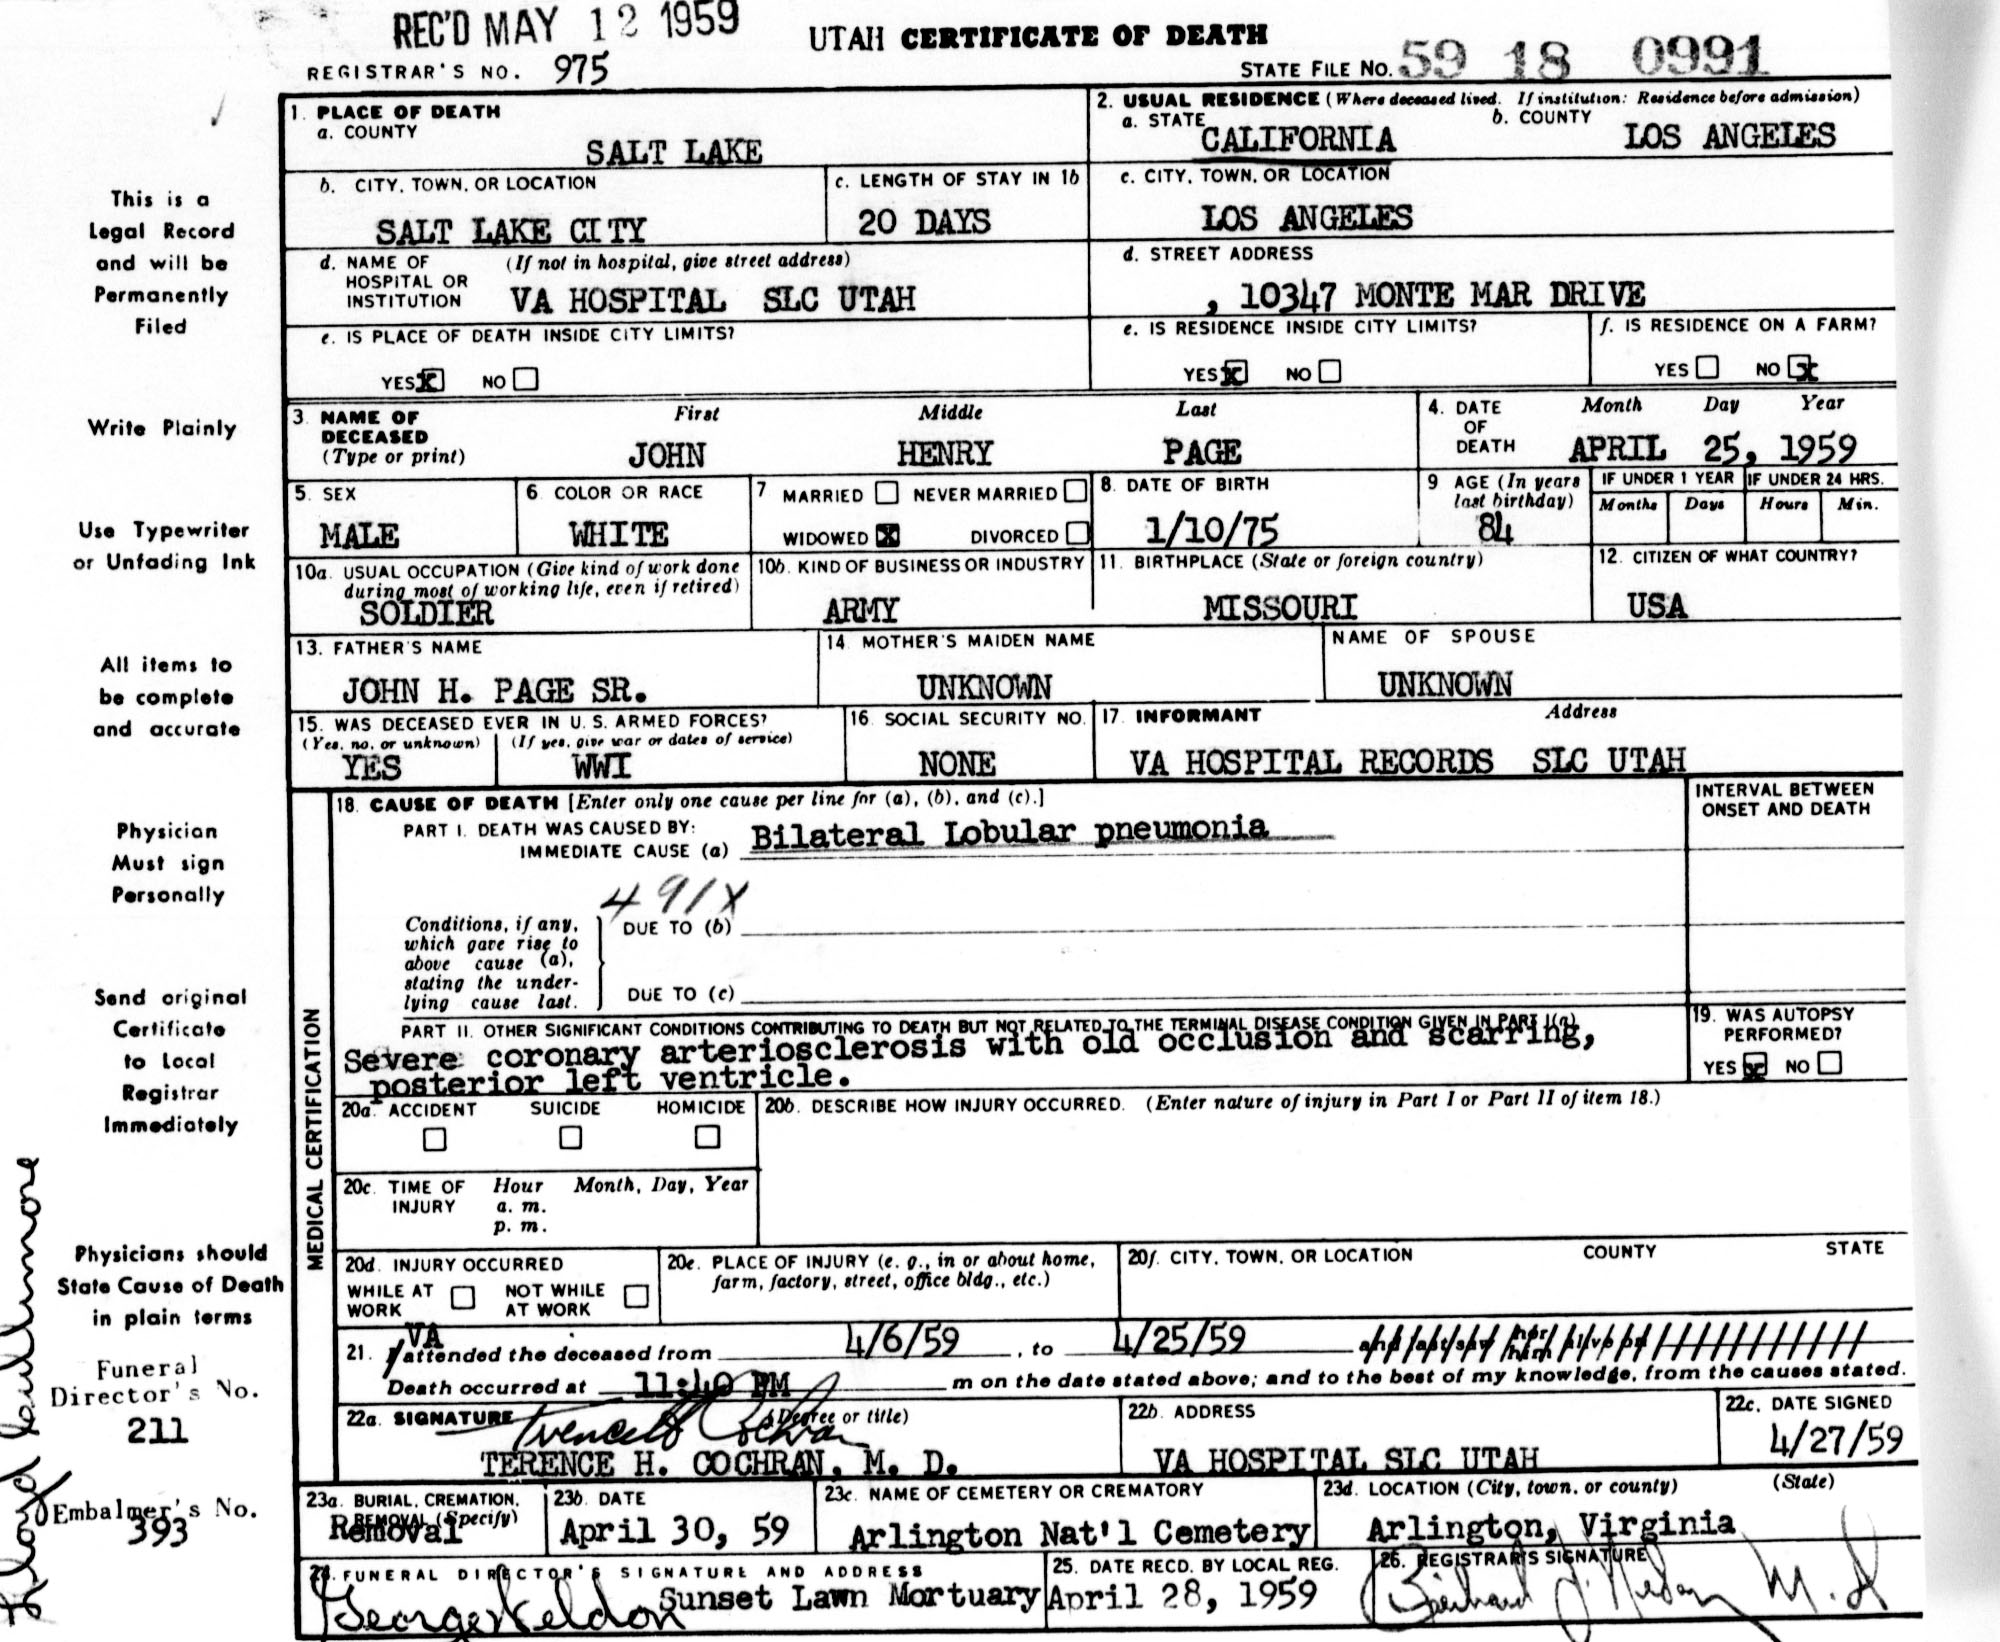 REC'D MAY 12 1959
UTAH CERTIFICATE OF DEATH
REGISTRAR'S NO. 975
STATE FILE NO. 59 18 0991
This is a
Legal Record
and will be
Permanently
Filed
Write Plainly
Use Typewriter
or Unfading Ink
All items to
be complete
and accurate
Physician
Must sign
Personally
Send original
Certificate
to Local
Registrar
Immediately
Physicians should
State Cause of Death
in plain terms
Funeral
Director's No.
211
Embalmer's No.
393
1. PLACE OF DEATH
a. COUNTY
SALT LAKE
2. USUAL RESIDENCE (Where deceased lived. If institution: Residence before admission)
a. STATE CALIFORNIA b. COUNTY LOS ANGELES
b. CITY, TOWN, OR LOCATION
SALT LAKE CITY
c. LENGTH OF STAY IN 1b
20 DAYS
c. CITY, TOWN, OR LOCATION
LOS ANGELES
d. NAME OF (If not in hospital, give street address)
HOSPITAL OR
INSTITUTION VA HOSPITAL SLC UTAH
d. STREET ADDRESS
, 10347 MONTE MAR DRIVE
e. IS PLACE OF DEATH INSIDE CITY LIMITS?
YES X NO
e. IS RESIDENCE INSIDE CITY LIMITS?
YES X NO
f. IS RESIDENCE ON A FARM?
YES NO X
3. NAME OF First Middle Last
DECEASED
(Type or print) JOHN HENRY PAGE
4. DATE Month Day Year
OF
DEATH APRIL 25, 1959
5. SEX
MALE
6. COLOR OR RACE
WHITE
7 MARRIED NEVER MARRIED
WIDOWED X DIVORCED
8. DATE OF BIRTH
1/10/75
9 AGE (In years
last birthday)
84
IF UNDER 1 YEAR IF UNDER 24 HRS.
Months Days Hours Min.
10a. USUAL OCCUPATION (Give kind of work done
during most of working life, even if retired)
SOLDIER
10b. KIND OF BUSINESS OR INDUSTRY
ARMY
11. BIRTHPLACE (State or foreign country)
MISSOURI
12. CITIZEN OF WHAT COUNTRY?
USA
13. FATHER'S NAME
JOHN H. PAGE SR.
14. MOTHER'S MAIDEN NAME
UNKNOWN
NAME OF SPOUSE
UNKNOWN
15. WAS DECEASED EVER IN U.S. ARMED FORCES?
(Yes, no, or unknown) (If yes, give war or dates of service)
YES WWI
16. SOCIAL SECURITY NO.
NONE
17. INFORMANT Address
VA HOSPITAL RECORDS SLC UTAH
MEDICAL CERTIFICATION
18. CAUSE OF DEATH [Enter only one cause per line for (a), (b), and (c).]
INTERVAL BETWEEN
ONSET AND DEATH
PART I. DEATH WAS CAUSED BY:
IMMEDIATE CAUSE (a) Bilateral Lobular pneumonia
491X
Conditions, if any,
which gave rise to
above cause (a),
stating the under-
lying cause last.
DUE TO (b)
DUE TO (c)
PART II. OTHER SIGNIFICANT CONDITIONS CONTRIBUTING TO DEATH BUT NOT RELATED TO THE TERMINAL DISEASE CONDITION GIVEN IN PART I(a)
Severe coronary arteriosclerosis with old occlusion and scarring,
posterior left ventricle.
19. WAS AUTOPSY
PERFORMED?
YES X NO
20a. ACCIDENT SUICIDE HOMICIDE
20b. DESCRIBE HOW INJURY OCCURRED. (Enter nature of injury in Part I or Part II of item 18.)
20c. TIME OF Hour Month, Day, Year
INJURY a. m.
p. m.
20d. INJURY OCCURRED
WHILE AT WORK NOT WHILE AT WORK
20e. PLACE OF INJURY (e. g., in or about home,
farm, factory, street, office bldg., etc.)
20f. CITY, TOWN, OR LOCATION COUNTY STATE
VA
21. I attended the deceased from 4/6/59, to 4/25/59 and last saw her him alive on
Death occurred at 11:40 PM m on the date stated above; and to the best of my knowledge, from the causes stated.
22a. SIGNATURE (Degree or title)
Terence H Cochran
TERENCE H. COCHRAN, M. D.
22b. ADDRESS
VA HOSPITAL SLC UTAH
22c. DATE SIGNED
4/27/59
23a. BURIAL, CREMATION,
REMOVAL (Specify)
Removal
23b. DATE
April 30, 59
23c. NAME OF CEMETERY OR CREMATORY
Arlington Nat'l Cemetery
23d. LOCATION (City, town, or county) (State)
Arlington, Virginia
24. FUNERAL DIRECTOR'S SIGNATURE AND ADDRESS
Sunset Lawn Mortuary
25. DATE RECD. BY LOCAL REG.
April 28, 1959
26. REGISTRAR'S SIGNATURE